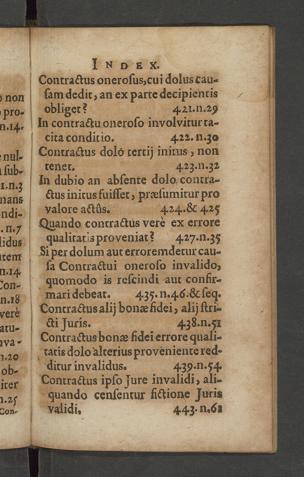 INDEX.
Contractus onerosus, cui dolus cau-
sam dedit, an ex parte decipientis
obliget? 421.n.29
In contractu oneroso involvitur ta-
cita conditio. 422.n.30
Contractus dolo tertij initus, non
tenet. 423.n.32
In dubio an absente dolo contra-
ctus initus fuisset, præsumitur pro
valore actûs. 424.& 425
Quando contractus verè ex errore
qualitatis proveniat? 427.n.35
Si per dolum aut errorem detur cau-
sa Contractui oneroso invalido,
quomodo is rescindi aut confir-
mari debeat. 435.n.46.& seq.
Contractus alij bonæ fidei, alij stri-
cti Juris. 438.n.51
Contractus bonæ fidei errore quali-
tatis dolo alterius proveniente red-
ditur invalidus. 439.n.54.
Contractus ipso Jure invalidi, ali-
quando censentur fictione Juris
validi. 443.n.62